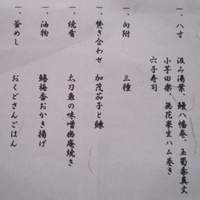 一、八寸
汲み湯葉、鰻八幡巻、玉蜀黍真丈
小芋田楽、無花果生ハム巻き
六子寿司
一、向附 三種
一、焚き合わせ 加茂茄子と鰊
一、焼肴 太刀魚の味噌幽庵焼き
一、油物 鱧梅香おかき揚げ
一、釜めし おくどさんごはん